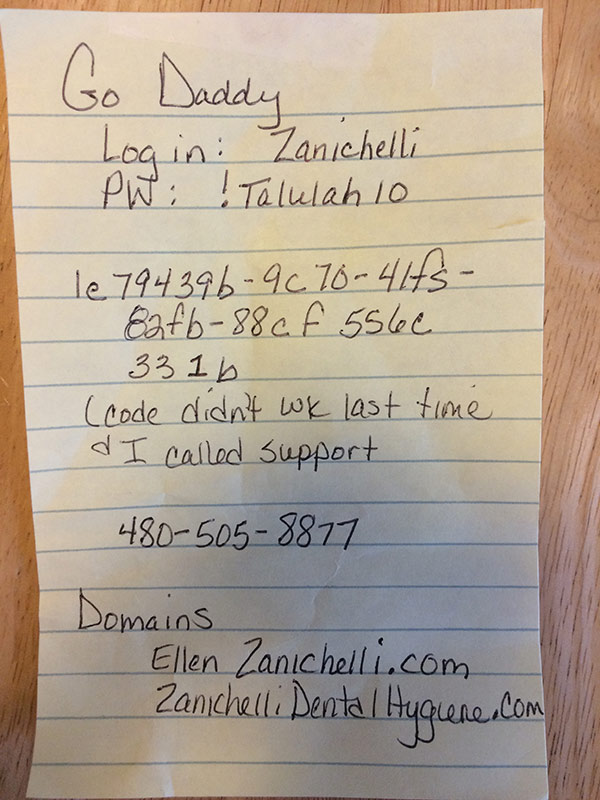 Go Daddy
Log in: Zanichelli
PW: !Talulah10
1e79439b-9c70-41f5-
82fb-88cf556c
331b
(code didn't wk last time
& I called support
480-505-8877
Domains
Ellen Zanichelli.com
ZanichelliDentalHygiene.com